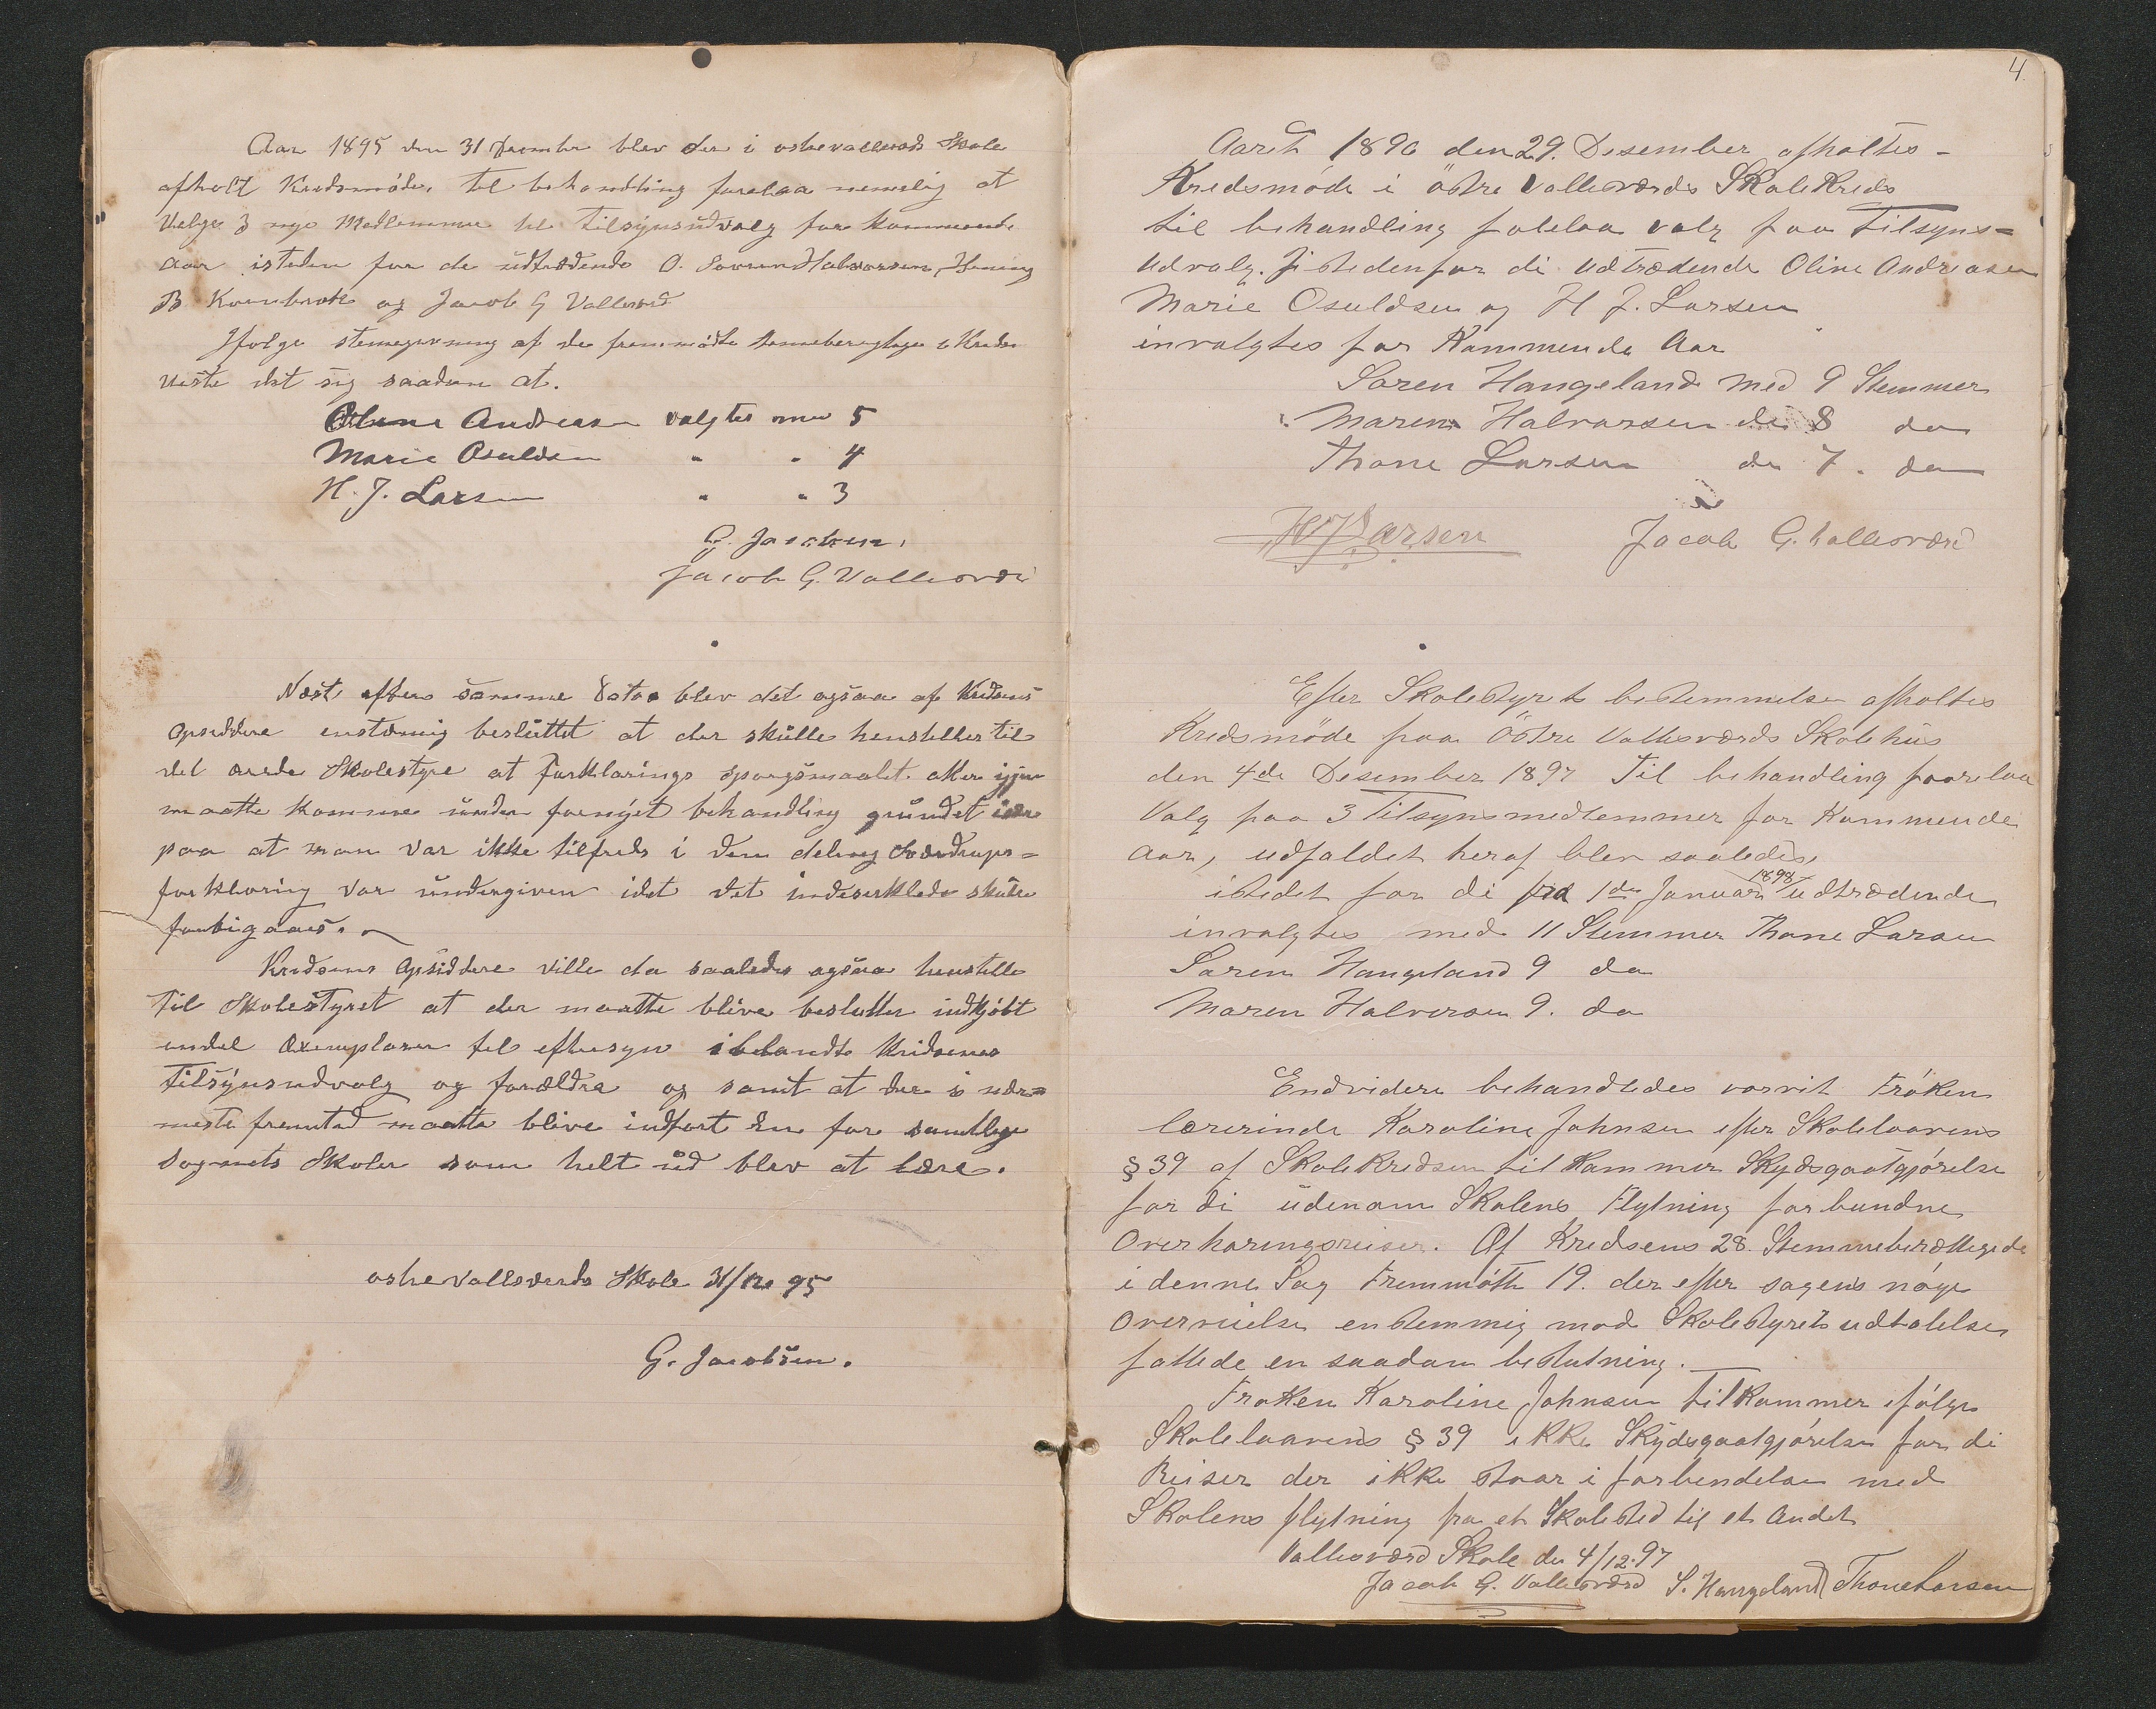 Aar 1895 den 31 Desember blev der i østre vallesværds Skole
afholt Kredsmøde. til behandling forelaa nemelig at
velge 3 nye Medlemmer til tilsynsudvalg for kommende
Aar isteden for de udtrædende O. Sørren Halvorsen, Hening
B og Jacob G Vallesværd
Ifølge stemegivning af de fremmødte stemeberegtige i Kredsen
viste det sig saadan at.
Oline Andreasen valgtes med 5
Marie Osuldsen " " 4
H. J. Larsen " " 3
G. Jacobsen.
Jacob G. Vallesværd
Næst efter samme Dato blev det ogsaa af Kredsens
Opsiddere enstemig besluttet at der skulle henstilles til
det ærede Skolestyre at forklarings spørgsmaalet atter igjen
maatte komme under fornyet behandling grundet
paa at man var ikke tilfreds i den deling Sverdrups=
forklaring var undergiven idet det skulle
forbigaaes.
Kredsens Opsiddere ville da saaledes ogsaa henstille
til Skolestyret at der maatte blive besluttet indkjøbt
endel Exemplarer til eftersyn iblandt Kredsenes
tilsynsudvalg og forældre og samt at der i nær=
meste fremtid maatte blive indført En for samtlige
Sognets Skoler som helt ud blev at lære.
østre Vallesværds Skole 31/12 95
G. Jacobsen.
4
Aaret 1896 den 29. Desember afholtes-
Kredsmöde i östre Vallesværds SkoleKreds
til behandling folelaa valg paa Tilsyns=
udvalg. Istedenfor di udtrædende Oline Andreasen
Marie Osuldsen og H J. Larsen
invalgtes for Kommende Aar
Søren Haugeland med 9 Stemmer
Maren Halvorsen do 8 do
Thone Larsen do 7. do
HJLarsen Jacob G. Vallesværd
Efter Skolestyrets bestemmelse afholtes
Kredsmöde paa Östre Vallesværds Skolehus
den 4de Desember 1897 Til behandling foorelaa
Valg paa 3 Tilsynsmedlemmer for Kommende
Aar, udfaldet heraf blev saaledes,
istedet for di fra 1de Januari 1898 udtrædende
invalgtes med 11 Stemmer Thone Larsen
Søren Haugeland 9 do
Maren Halvorsen 9. do
Endvidere behandledes vorvit Fröken
lærerinde Karoline Johnsen efter Skolelovens
§ 39 af SkoleKredsen tilKommer Skydsgodtgjörelse
for di udenom Skolens Flytning forbundne
Overhøringsreiser. Af Kredsens 28. Stemmeberættigede
i denne Sag Fremmötte 19. der efter sagens nöye
Overveielse enstemmig mod Skolestyrets udtalelse
fattede en saadan beslutning.
Frøken Karoline Johnsen tilKommer ifölge
Skolelovens § 39 iKKe Skydsgodtgjörelse for di
Reiser der iKKe staar i forbendelse med
Skolens flytning fra et Skolested til et Andet
Vallesværd Skole den 4/12.97
Jacob G. Vallesværd S. Haugeland Thone Larsen